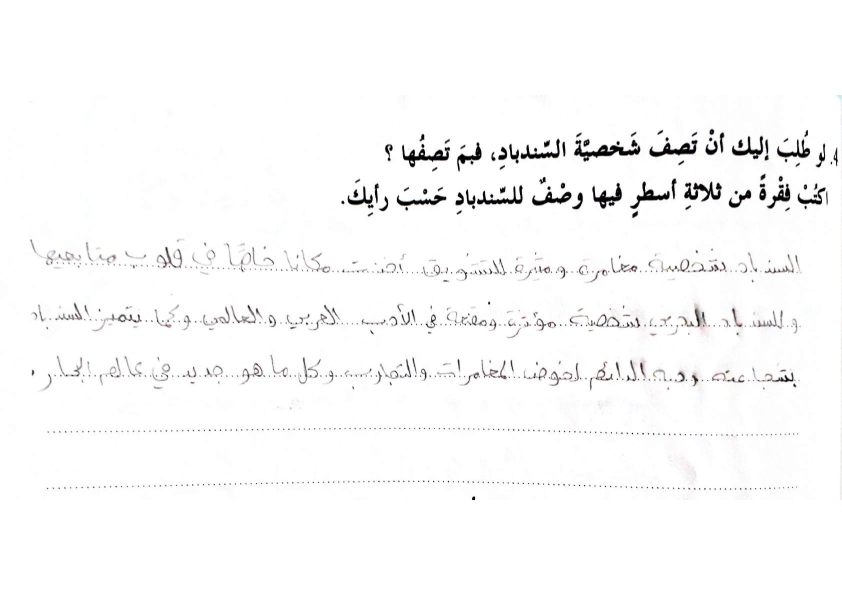 4. لو طُلِبَ إليك أنْ تَصِفَ شَخصيَّةَ السِّندبادِ، فبمَ تَصِفُها ؟
اكتُبْ فِقْرةً من ثلاثةِ أسطرٍ فيها وصْفٌ للسِّندبادِ حَسْبَ رأيِكَ.
السندباد شخصية مغامرة ومثيرة للتشويق أخذت مكانا خاصًا في قلوب متابعيها
والسندباد البحري شخصية مؤثرة ومقنعة في الأدب العربي والعالمي وكما يتميز السندباد
بشجاعته وحبه الدائم لخوض المغامرات والتجارب وكل ما هو جديد في عالم البحار.